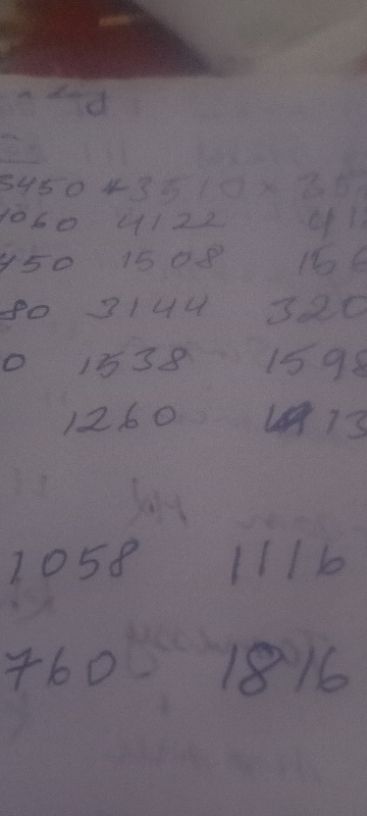 3450 3510 × 35
1060 4122 41
450 1508 156
80 3144 320
0 1538 1598
1260 13
1058 1116
760 1816